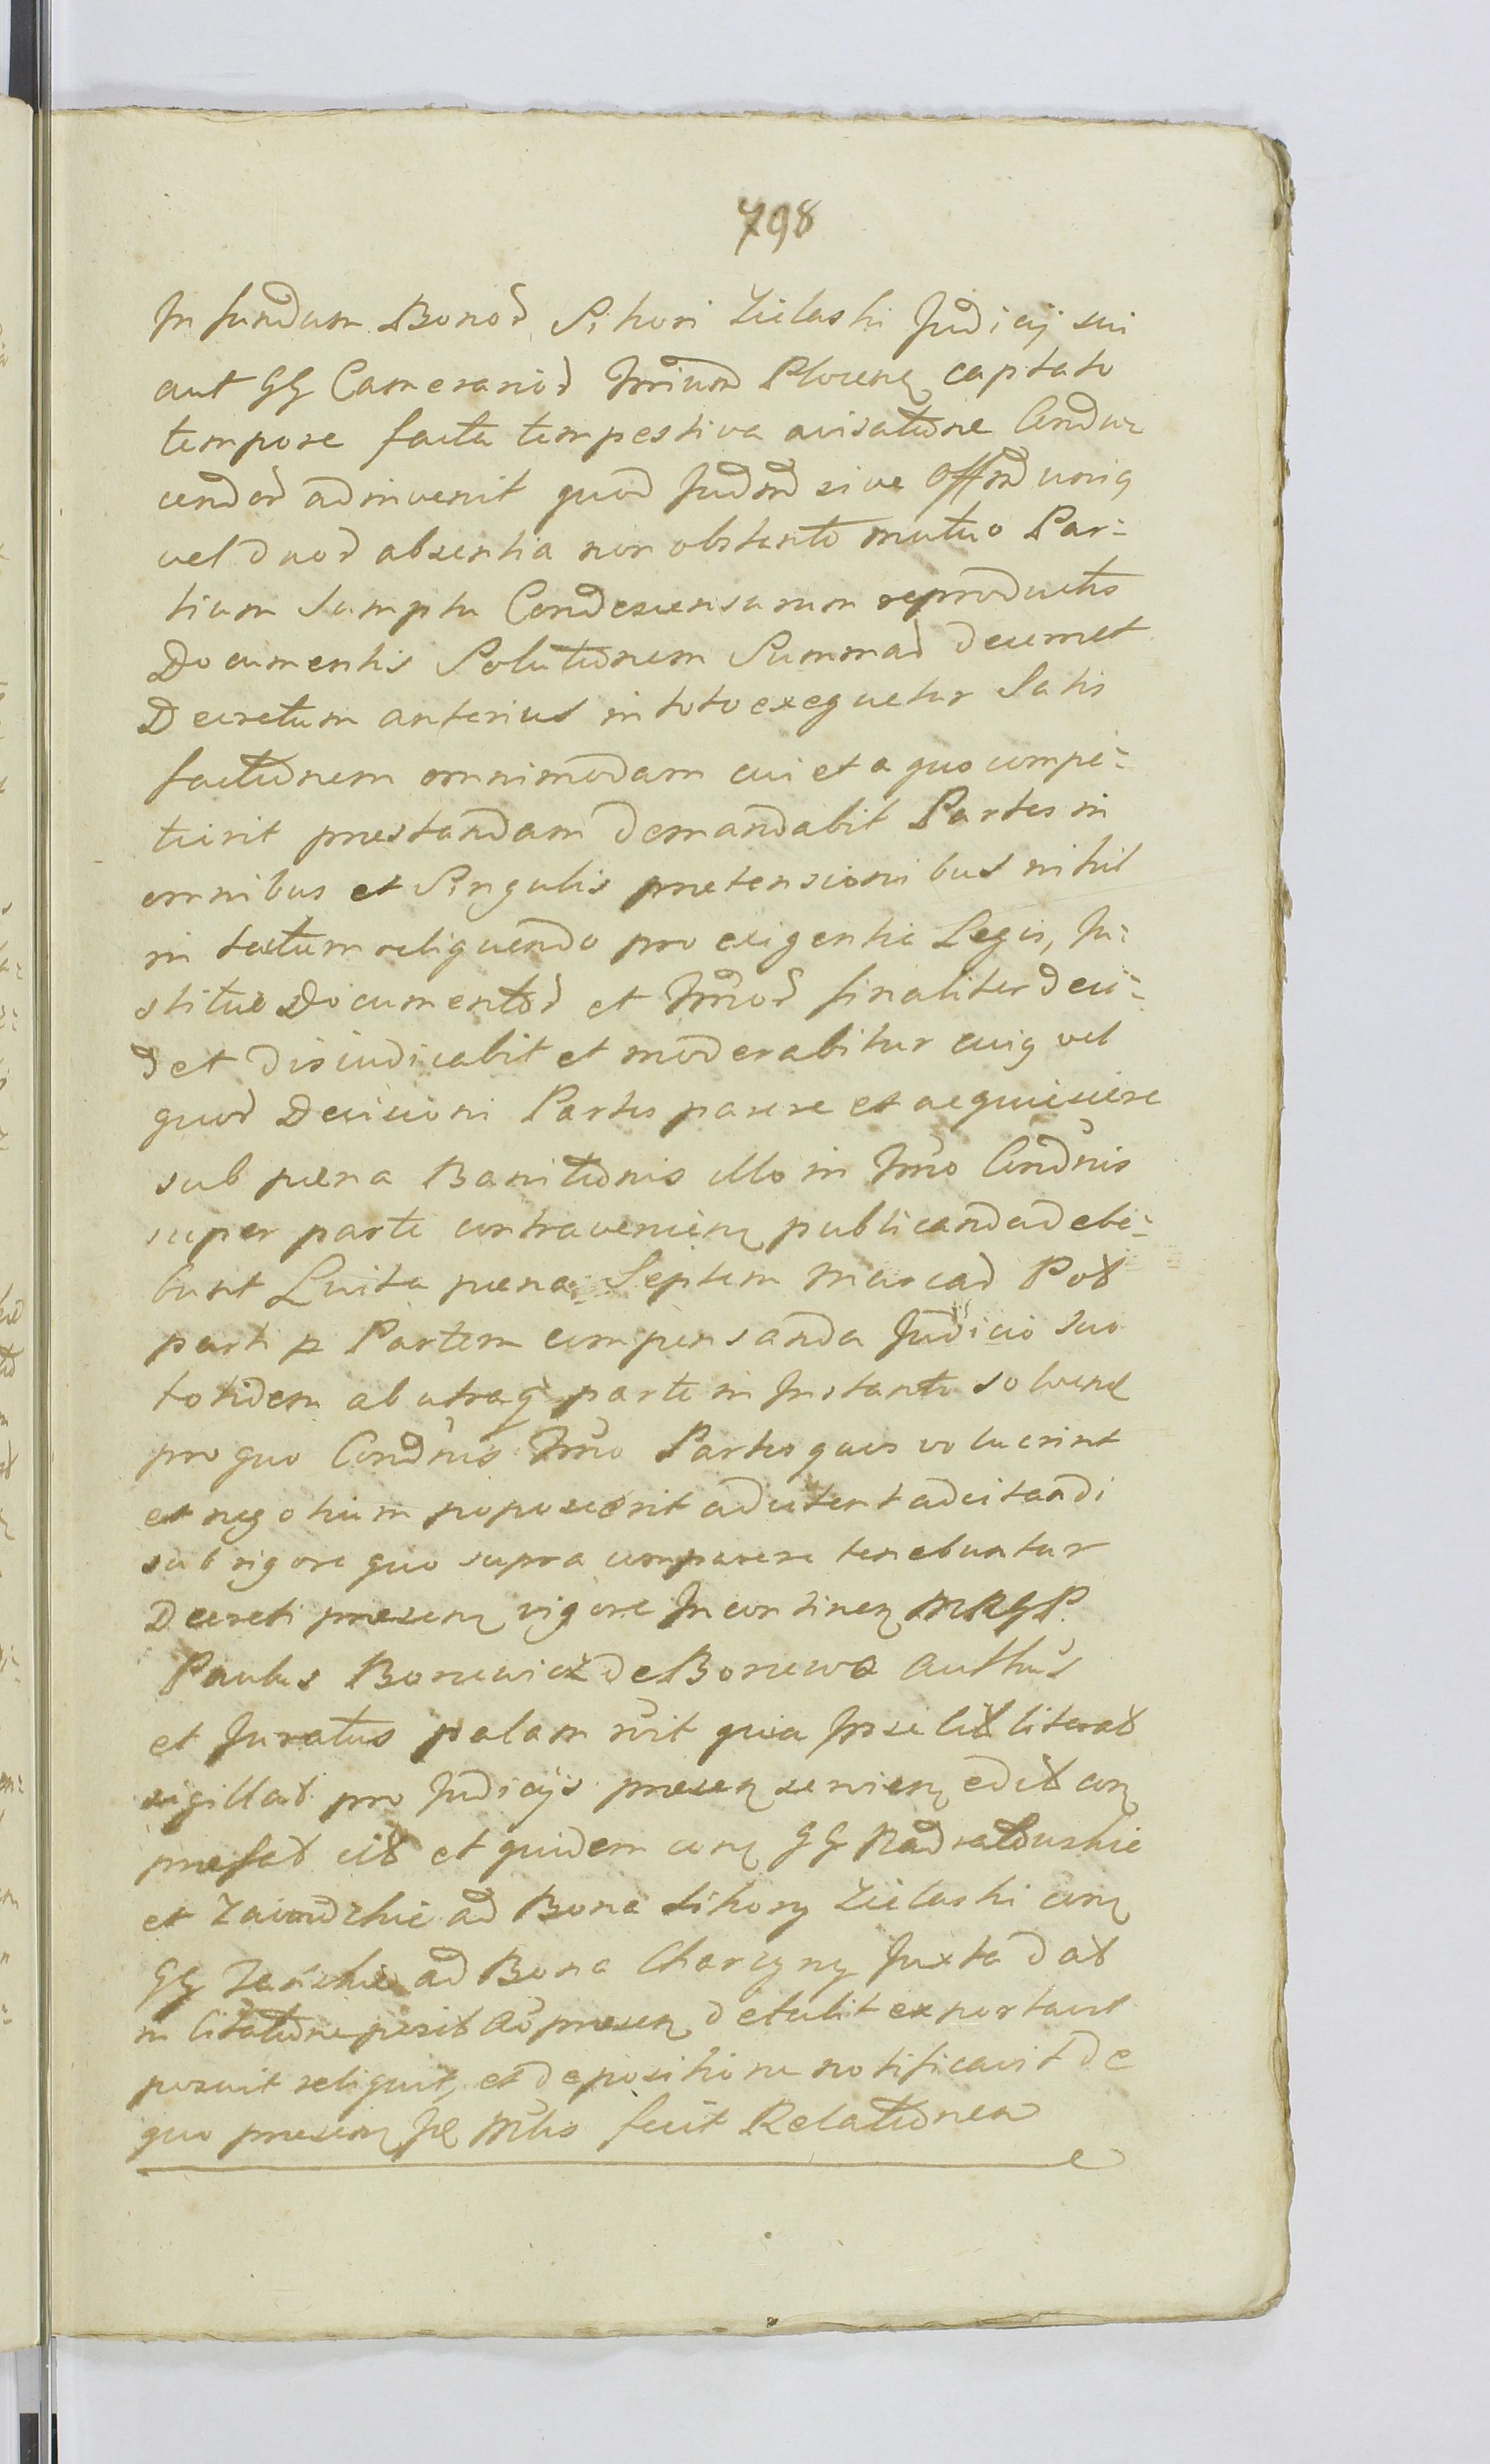 798
In fundum Bonor Sikori Zielaski Judicij sui
aut GG Camerarior Trrium Plocen captato
tempore facta tempestiva avisatione Condu
cendor adinvenit quod Judm sive Offm unius
vel duor absentia non obstante mutuo Par-
tium Sumptu Condescensurum reproductis
Documentis Solutionem Summar decernet
Decretum anterius in toto exequetur Satis
factionem omnimodam cui et a quo compe-
tierit praestandam demandabit Partes in
omnibus et Singulis praetensionibus nihil
in rectum relinquendo pro exigentia Legis, Ju-
stitiae Documentor et Jurior finaliter deci-
det disiudicabit et moderabitur cuiq vel
quor Decisioni Partes parere et acquiescere
sub poena Banitionis illo in Trmo Condnis
super parte contravenien publicanda debe-
bunt Luita poena Septem Marcar Pol
parti p Partem compensanda Judicio suo
totidem ab utraq parte in Instanti solven
pro quo Condnis Trmo Partes quos voluerint
et negotium poposcerit adcitent adcitandi
sub rigore quo supra comparere tenebuntur
Decreti praesen vigore Incontinen MRGP.
Paulus Boniewicz de Boniewo Authus
et Juratus palam rvit quia Ipse lit literat
sigillat pro Judicijs praesen servien edit con
praefat cit et quidem con GG Nadratowskie
et Zawidzkie ad Bona Sikory Zielaski con
GG Jasickie ad Bona Charzyny Juxta dat
in Citatione posit ad praesen detulit exportavit
posuit reliquit, et de positione notificavit de
quo praesen Ip Mlis fecit Relationem